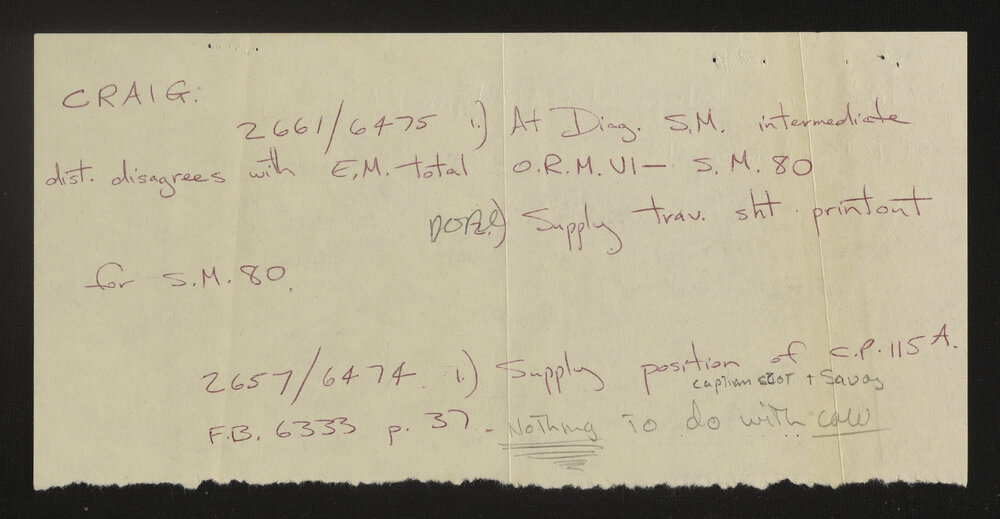 CRAIG:
2661/6475 1.) At Diag. S.M. intermediate
dist. disagrees with E.M. total O.R.M. VI - S.M. 80
2.) Supply trav. sht. printout
for S.M. 80.
2657/6474. 1.) Supply position of C.P. 115A.
captian + Savoy
F.B. 6333 p. 37. - Nothing To do with